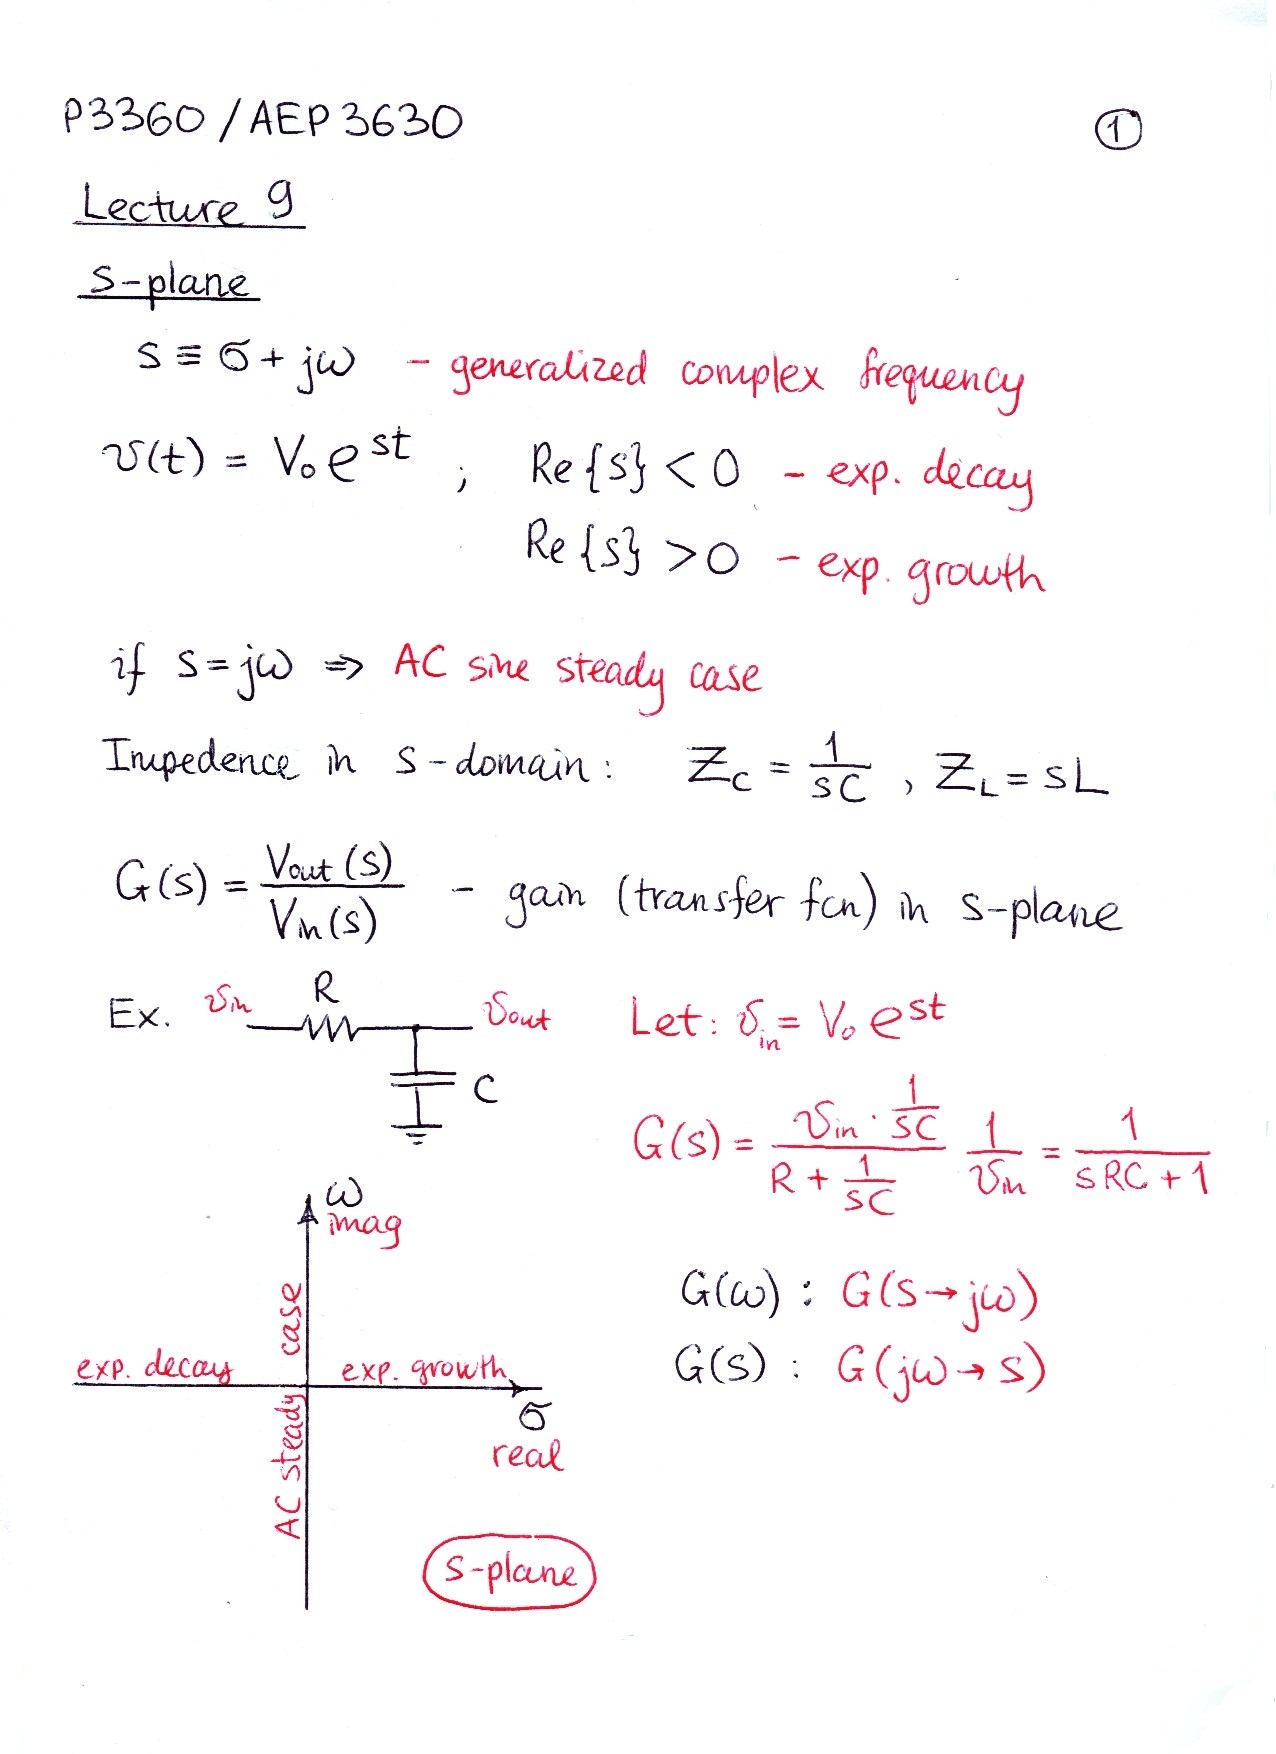 P3360 / AEP 3630
1
Lecture 9
S-plane
S ≡ σ + jω - generalized complex frequency
v(t) = V₀ e^st ; Re{s} < 0 - exp. decay
Re{s} > 0 - exp. growth
if s = jω ⇒ AC sine steady case
Impedence in s-domain: Z_C = 1/sC , Z_L = sL
G(s) = Vout(s)/Vin(s) - gain (transfer fcn) in s-plane
Ex. vin R vout C
Let: v_in = V₀ e^st
G(s) = (vin · 1/sC)/(R + 1/sC) 1/vin = 1/(sRC + 1)
ω
imag
G(ω) : G(s → jω)
G(s) : G(jω → s)
exp. decay
exp. growth
AC steady case
σ
real
S-plane